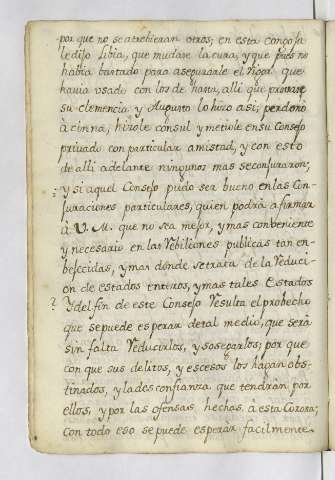 por que no se atrebieran otros; en esta congoja
le dijo Libia, que mudase la cura, y que pues no
habia bastado para asegurarle el rigor que
havia usado con los de hasta, alli que probase
su clemencia y Augusto lo hizo asi; perdono
à cinna, hizole consul y metiole en su Consejo
privado con particular amistad, y con esto
de alli adelante ningunos mas se conjuraron,
y si aquel Consejo pudo ser bueno en las Con-
juraciones particulares, quien podrà afirmar
à V. M. que no sea mejor, y mas conveniente
y necesario en las Rebiliones publicas tan en-
bejecidas, y mas donde se trata de la Reduci-
on de estados enteros, y mas tales Estados
? Y del fin de este Consejo Resulta el probecho
que se puede esperar de tal medio, que serà
sin falta Reducirlos, y sosegarlos; por que
con que sus delitos, y escesos los hagan obs-
tinados, y la desconfianza que tendràn por
ellos, y por las ofensas hechas à esta Corona;
con todo eso se puede esperar facilmente